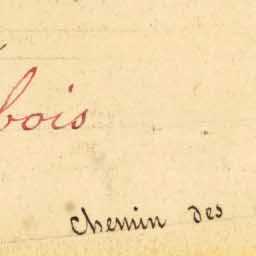 bois
Chemin des